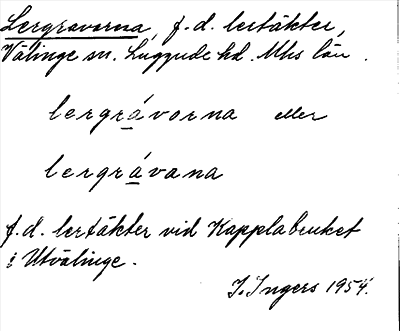 Lergravorna, f.d. lertäkter,
Välinge sn. Luggude hd. Mhs län.
lergrávorna eller
lergrávana
f.d. lertäkter vid Kapplabruket
i Utvälinge.
I. Ingers 1954.